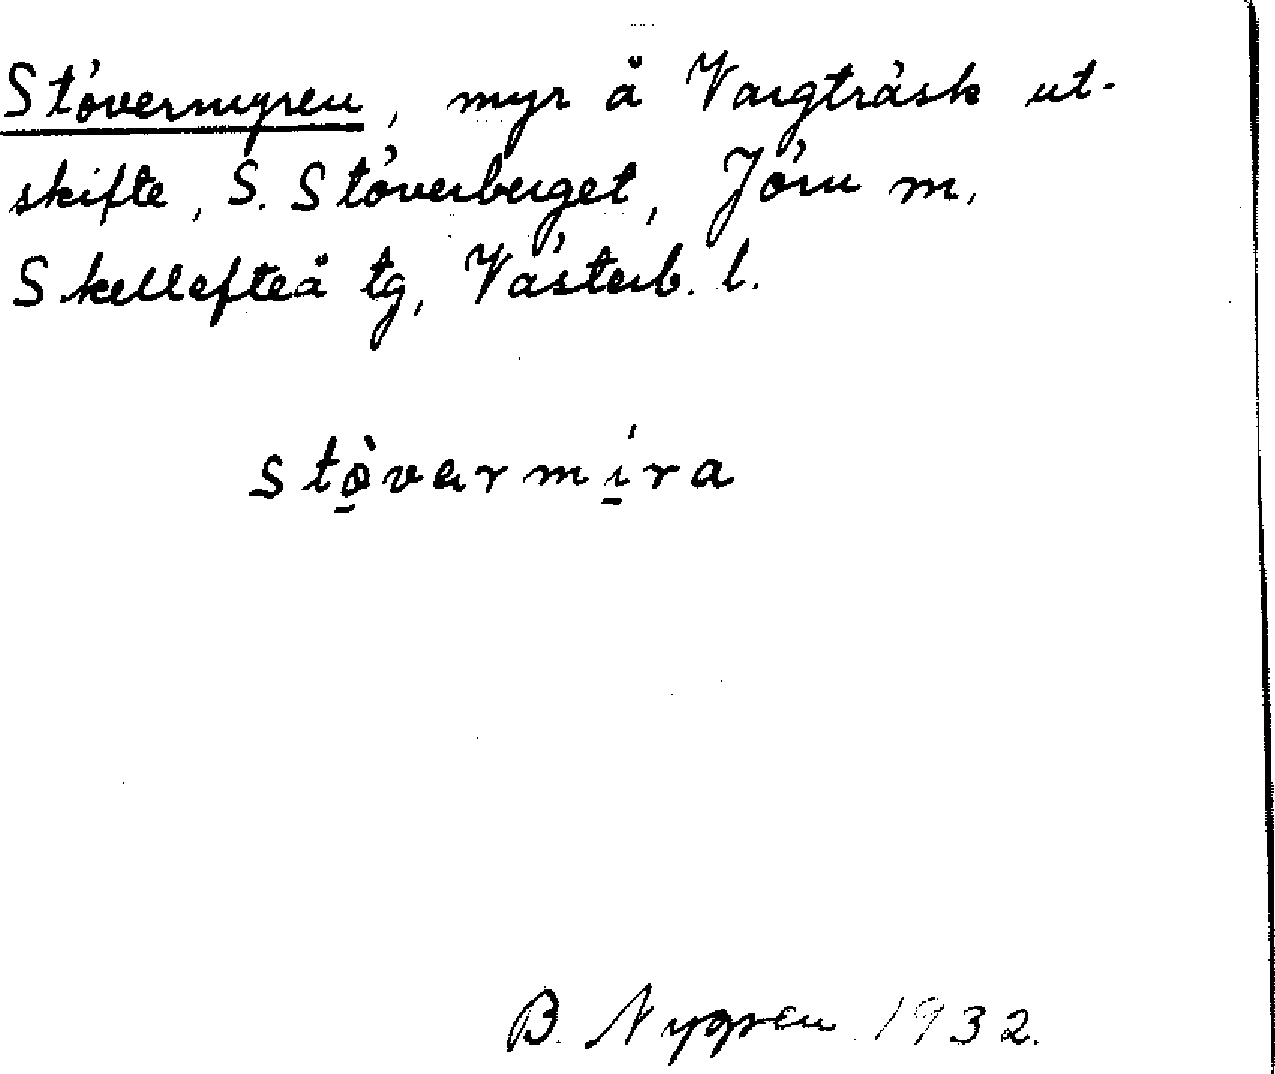 Stövermyren, myr å Vargträsk ut-
skifte, S. Stöverberget, Jörn m.
Skellefteå tg, Västerb. l.
stò̱varmí̱ra
B. Nygren 1932.